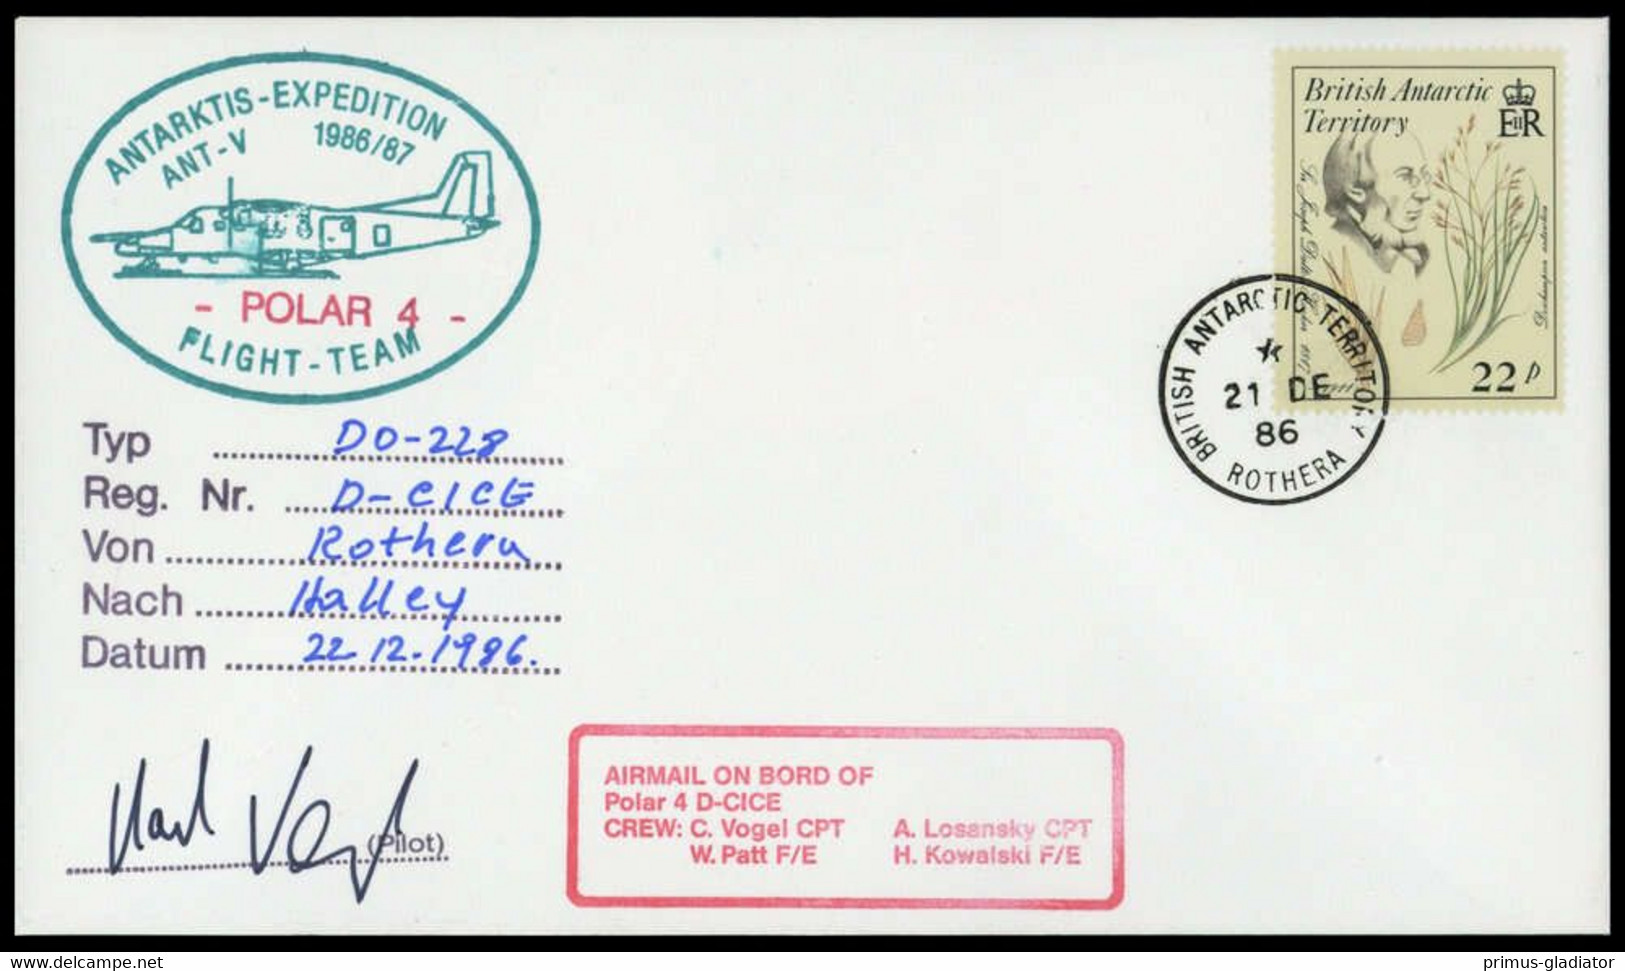 ANTARKTIS-EXPEDITION
ANT-V 1986/87
- POLAR 4 -
FLIGHT-TEAM
British Antarctic
Territory
EIIR
Sir Joseph Dalton Hooker 1817-1911
Deschampsia antarctica
22p
BRITISH ANTARCTIC TERRITORY
21 DE
86
ROTHERA
Typ DO-228
Reg. Nr. D-CICE
Von Rothera
Nach Halley
Datum 22.12.1986.
Karl Vogel
(Pilot)
AIRMAIL ON BORD OF
Polar 4 D-CICE
CREW: C. Vogel CPT A. Losansky CPT
W. Patt F/E H. Kowalski F/E
delcampe.net
primus-gladiator